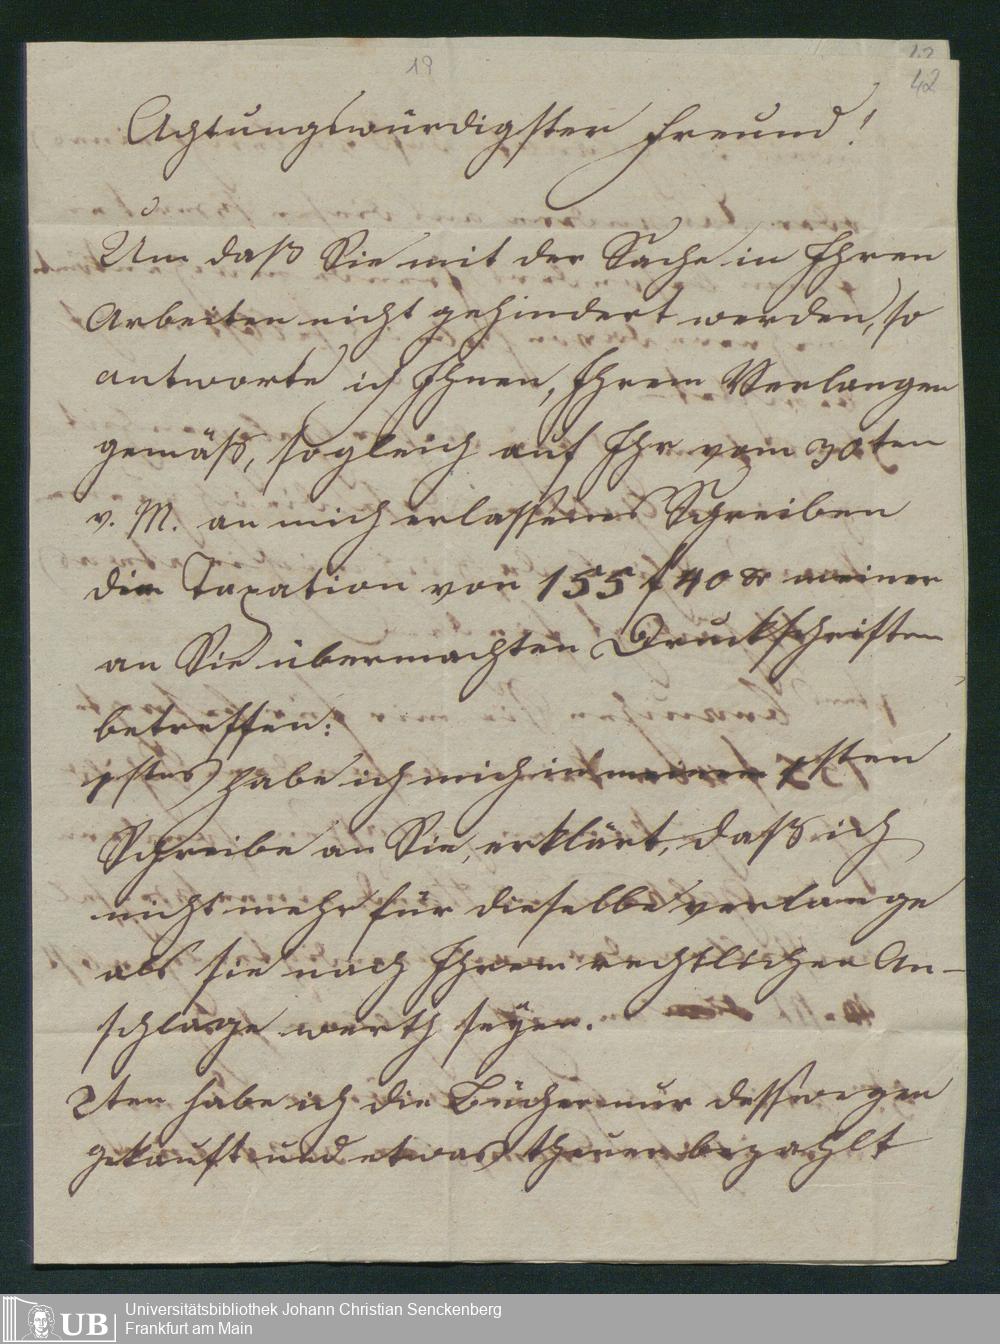 19
42
42
Achtungswürdigster Freund!
Um daß Sie mit der Sache in Ihren
Arbeiten nicht gehindert werden, so
antworte ich Ihnen, Ihrem Verlangen
gemäß, sogleich auf Ihr vom 30ten
v. M. an mich erlassenes Schreiben
die Taxation von 155 f 40 xr meiner
an Sie übermachten Druckschriften
betreffen:
1stes habe ich mich in meinem 1sten
Schreibe an Sie, erklärt, daß ich
nicht mehr für dieselbe verlange
als sie nach Ihrem rechtlichen An-
schlage werth seyen.
2ten habe ich die Bücher nur desswegen
gekauft und etwas theuer bezahlt
UB
Universitätsbibliothek Johann Christian Senckenberg
Frankfurt am Main